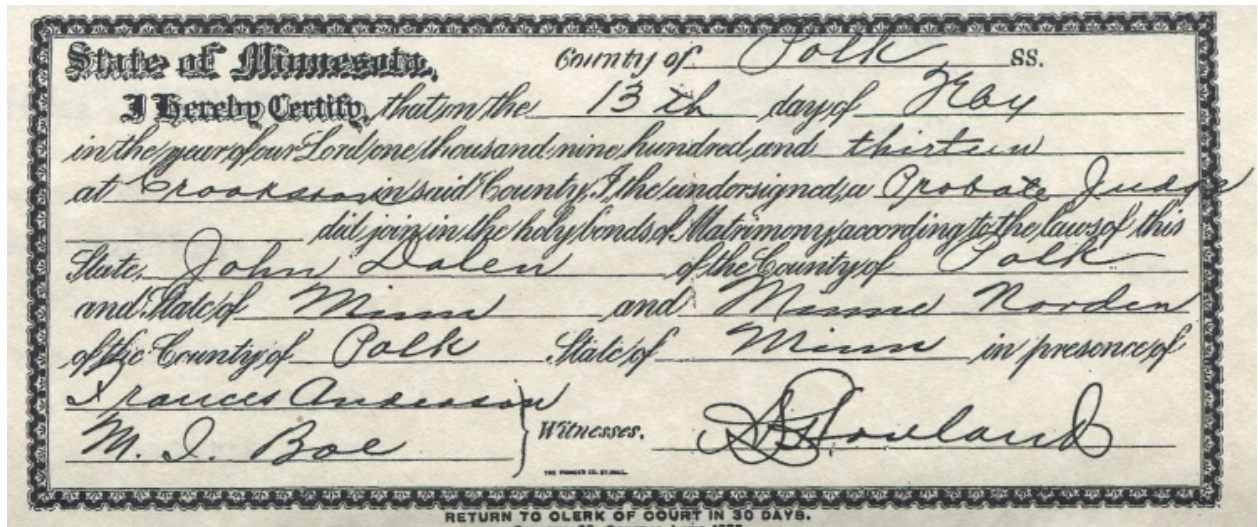 State of Minnesota, County of Polk SS.
I Hereby Certify, that on the 13th day of
in the year of our Lord one thousand nine hundred and thirteen
at Crookston in said County, I, the undersigned, a Probate Judge
did join in the holy bonds of Matrimony, according to the laws of this
State, John Dalen of the County of Polk
and State of Minn and Minnie Norden
of the County of Polk State of Minn in presence of
Frances Anderson
M. I. Boe Witnesses.
THE PIONEER CO. ST. PAUL.
RETURN TO CLERK OF COURT IN 30 DAYS.